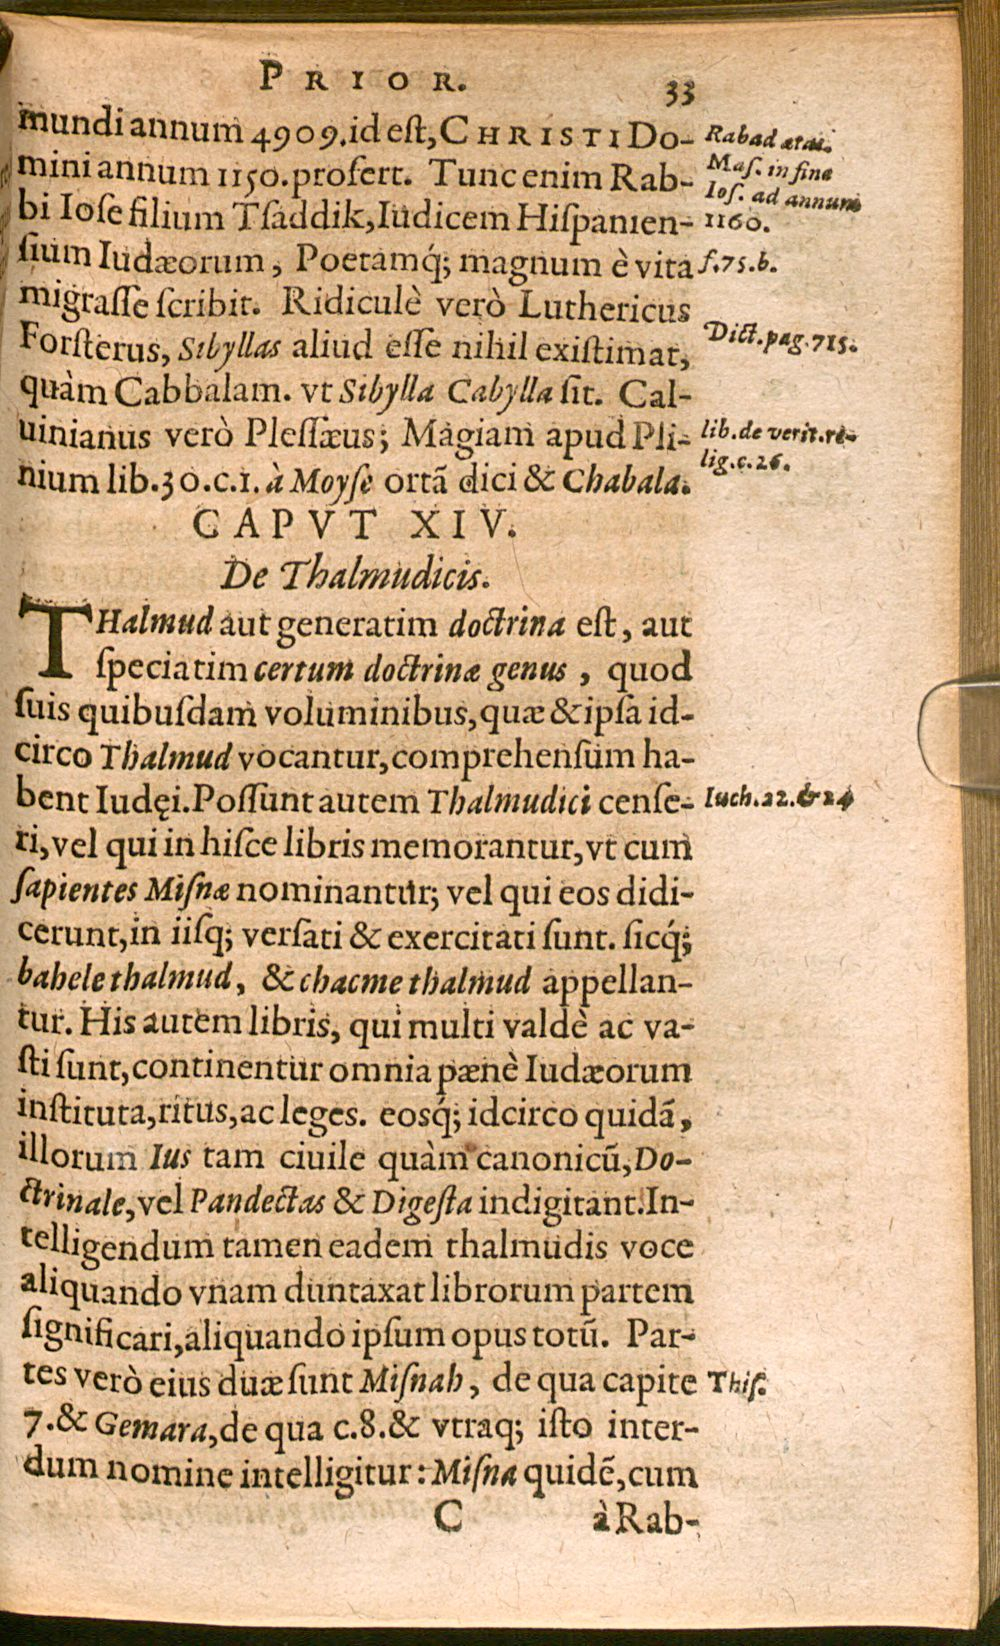 PRIOR. 33
mundi annum 4909. id est, CHRISTI Do-
mini annum 1150. profert. Tunc enim Rab-
bi Iose filium Tsaddik, Iudicem Hispanien-
sium Iudæorum, Poetamq́; magnum è vita
migrasse scribit. Ridiculè verò Luthericus
Forsterus, Sibyllas aliud esse nihil existimat,
quàm Cabbalam. vt Sibylla Cabylla sit. Cal-
uinianus verò Plessæus; Magiam apud Pli-
nium lib. 30. c. 1. à Moyse ortã dici & Chabala.
Rabad
Mas. in fine
Ios. ad annum
1160.
f. 75. b.
Dict. pag. 715.
lib. de verit. re-
lig. c. 26.
CAPVT XIV.
De Thalmudicis.
THalmud aut generatim doctrina est, aut
speciatim certum doctrinæ genus, quod
suis quibusdam voluminibus, quæ & ipsa id-
circo Thalmud vocantur, comprehensum ha-
bent Iudęi. Possunt autem Thalmudici cense-
ri, vel qui in hisce libris memorantur, vt cum
sapientes Misnæ nominantur; vel qui eos didi-
cerunt, in iisq; versati & exercitati sunt. sicq́;
bahele thalmud, & chacme thalmud appellan-
tur. His autem libris, qui multi valdè ac va-
sti sunt, continentur omnia pænè Iudæorum
instituta, ritus, ac leges. eosq́; idcirco quidã,
illorum Ius tam ciuile quàm canonicũ, Do-
ctrinale, vel Pandectas & Digesta indigitant. In-
telligendum tamen eadem thalmudis voce
aliquando vnam duntaxat librorum partem
significari, aliquando ipsum opus totũ. Par-
tes verò eius duæ sunt Misnah, de qua capite
7. & Gemara, de qua c. 8. & vtraq; isto inter-
dum nomine intelligitur: Misna quidẽ, cum
Iuch. 22. & 24
This.
C à Rab-